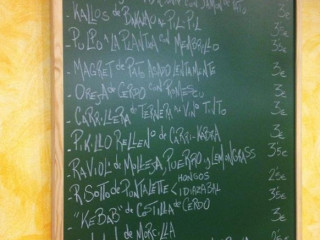 CON JAMÓN DE PATO 3€
- KALLOS DE BAKALAO AL PIL-PIL 3€
- PULPO A LA PLANTXA CON MEMBRILLO 3'5€
- MAGRET DE PATO ASADO LENTAMENTE 3€
- OREJA DE CERDO CON ROMESCU 3€
- CARRILLERA DE TERNERA AL VINO TINTO 3€
- PIKILLO RELLENO DE CARRI-KABRA 3€
- RAVIOLI DE MOLLEJA, PUERRO Y LEMONGRASS 3'5€
- RISOTTO DE PUNTALETTE < HONGOS IDIAZABAL
- "KEBAB" DE COSTILLA DE CERDO 3€
DE MORCILLA